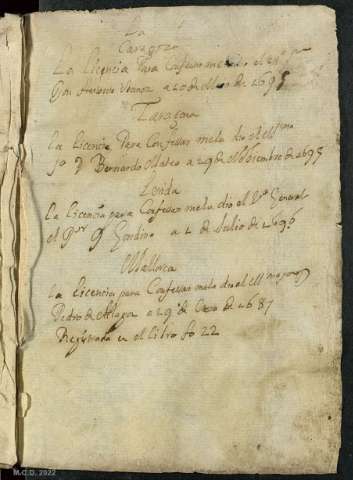 La
Caragoza
La Licencia Para Confesar me dio el Ill.mo
Don Antonio a 20 de de 1695
Taragona
La Licencia Para Confessar me la dio el Ill.mo
Sr D Bernardo Mateo a 29 de Nobiembre de 1695
Lerida
La Licencia para Confessar me la dio el Vo General
el Dor a 2 de Julio de 1696
Mallorca
La Licencia para Confessar me la dio el Ill.mo
Pedro de Alagon a 29 de de 1687
Registrada en el Libro fo 22
M.C.D. 2022